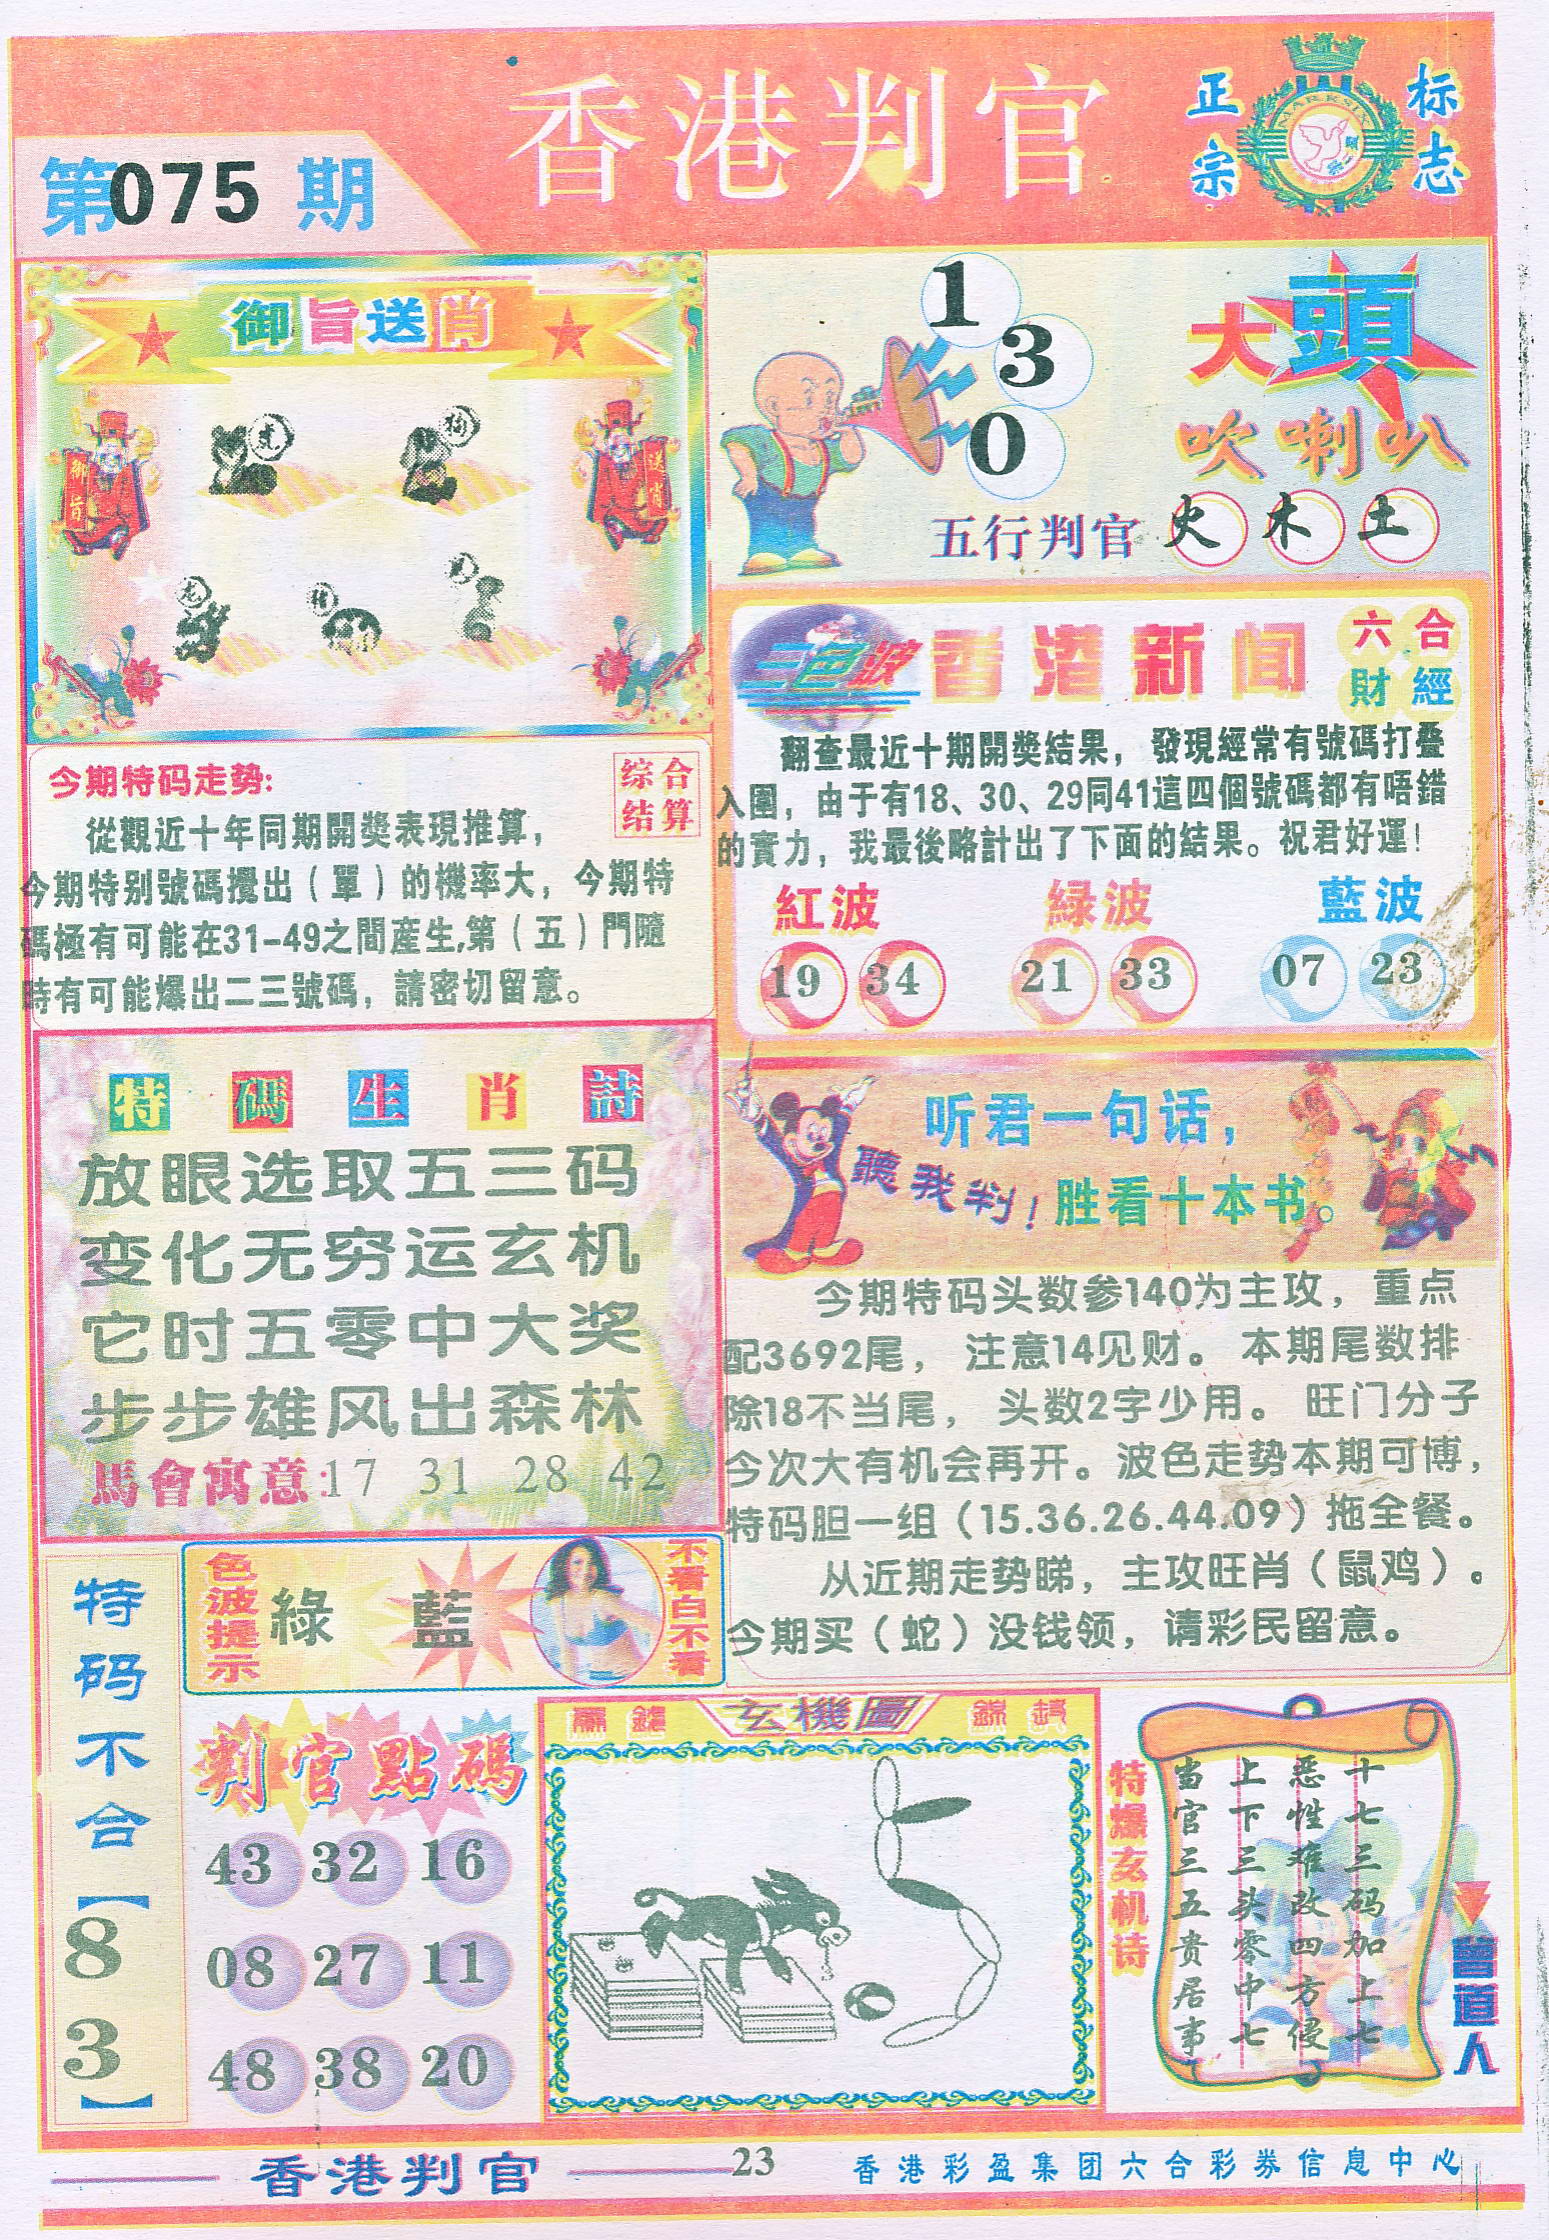 香港判官
第075期
正宗
标志
MARK SIX
御旨送肖
虎
狗
御旨
送肖
龙
猪
1
3
0
大頭
吹喇叭
五行判官 火 木 土
三色波
香港新闻
六合
財經
翻查最近十期開獎結果，發現經常有號碼打叠
入圍，由于有18、30、29同41這四個號碼都有唔錯
的實力，我最後略計出了下面的結果。祝君好運！
紅波 緑波 藍波
19 34 21 33 07 23
今期特码走势:
综合
结算
從觀近十年同期開獎表現推算，
今期特别號碼攪出（單）的機率大，今期特
碼極有可能在31-49之間産生,第（五）門隨
時有可能爆出二三號碼，請密切留意。
特碼生肖詩
放眼选取五三码
变化无穷运玄机
它时五零中大奖
步步雄风出森林
馬會寓意:17 31 28 42
听君一句话，
聽我判！胜看十本书。
今期特码头数参140为主攻，重点
配3692尾，注意14见财。本期尾数排
除18不当尾，头数2字少用。旺门分子
今次大有机会再开。波色走势本期可博，
特码胆一组（15.36.26.44.09）拖全餐。
从近期走势睇，主攻旺肖（鼠鸡）。
今期买（蛇）没钱领，请彩民留意。
特码不合【83】
色波提示
綠 藍
不看白不看
判官點碼
43 32 16
08 27 11
48 38 20
玄機圖
特爆玄机诗
十七三码加上七
恶性难改四方侵
上下三头零中七
当官三五贵居事
曾道人
香港判官
23
香港彩盈集团六合彩券信息中心